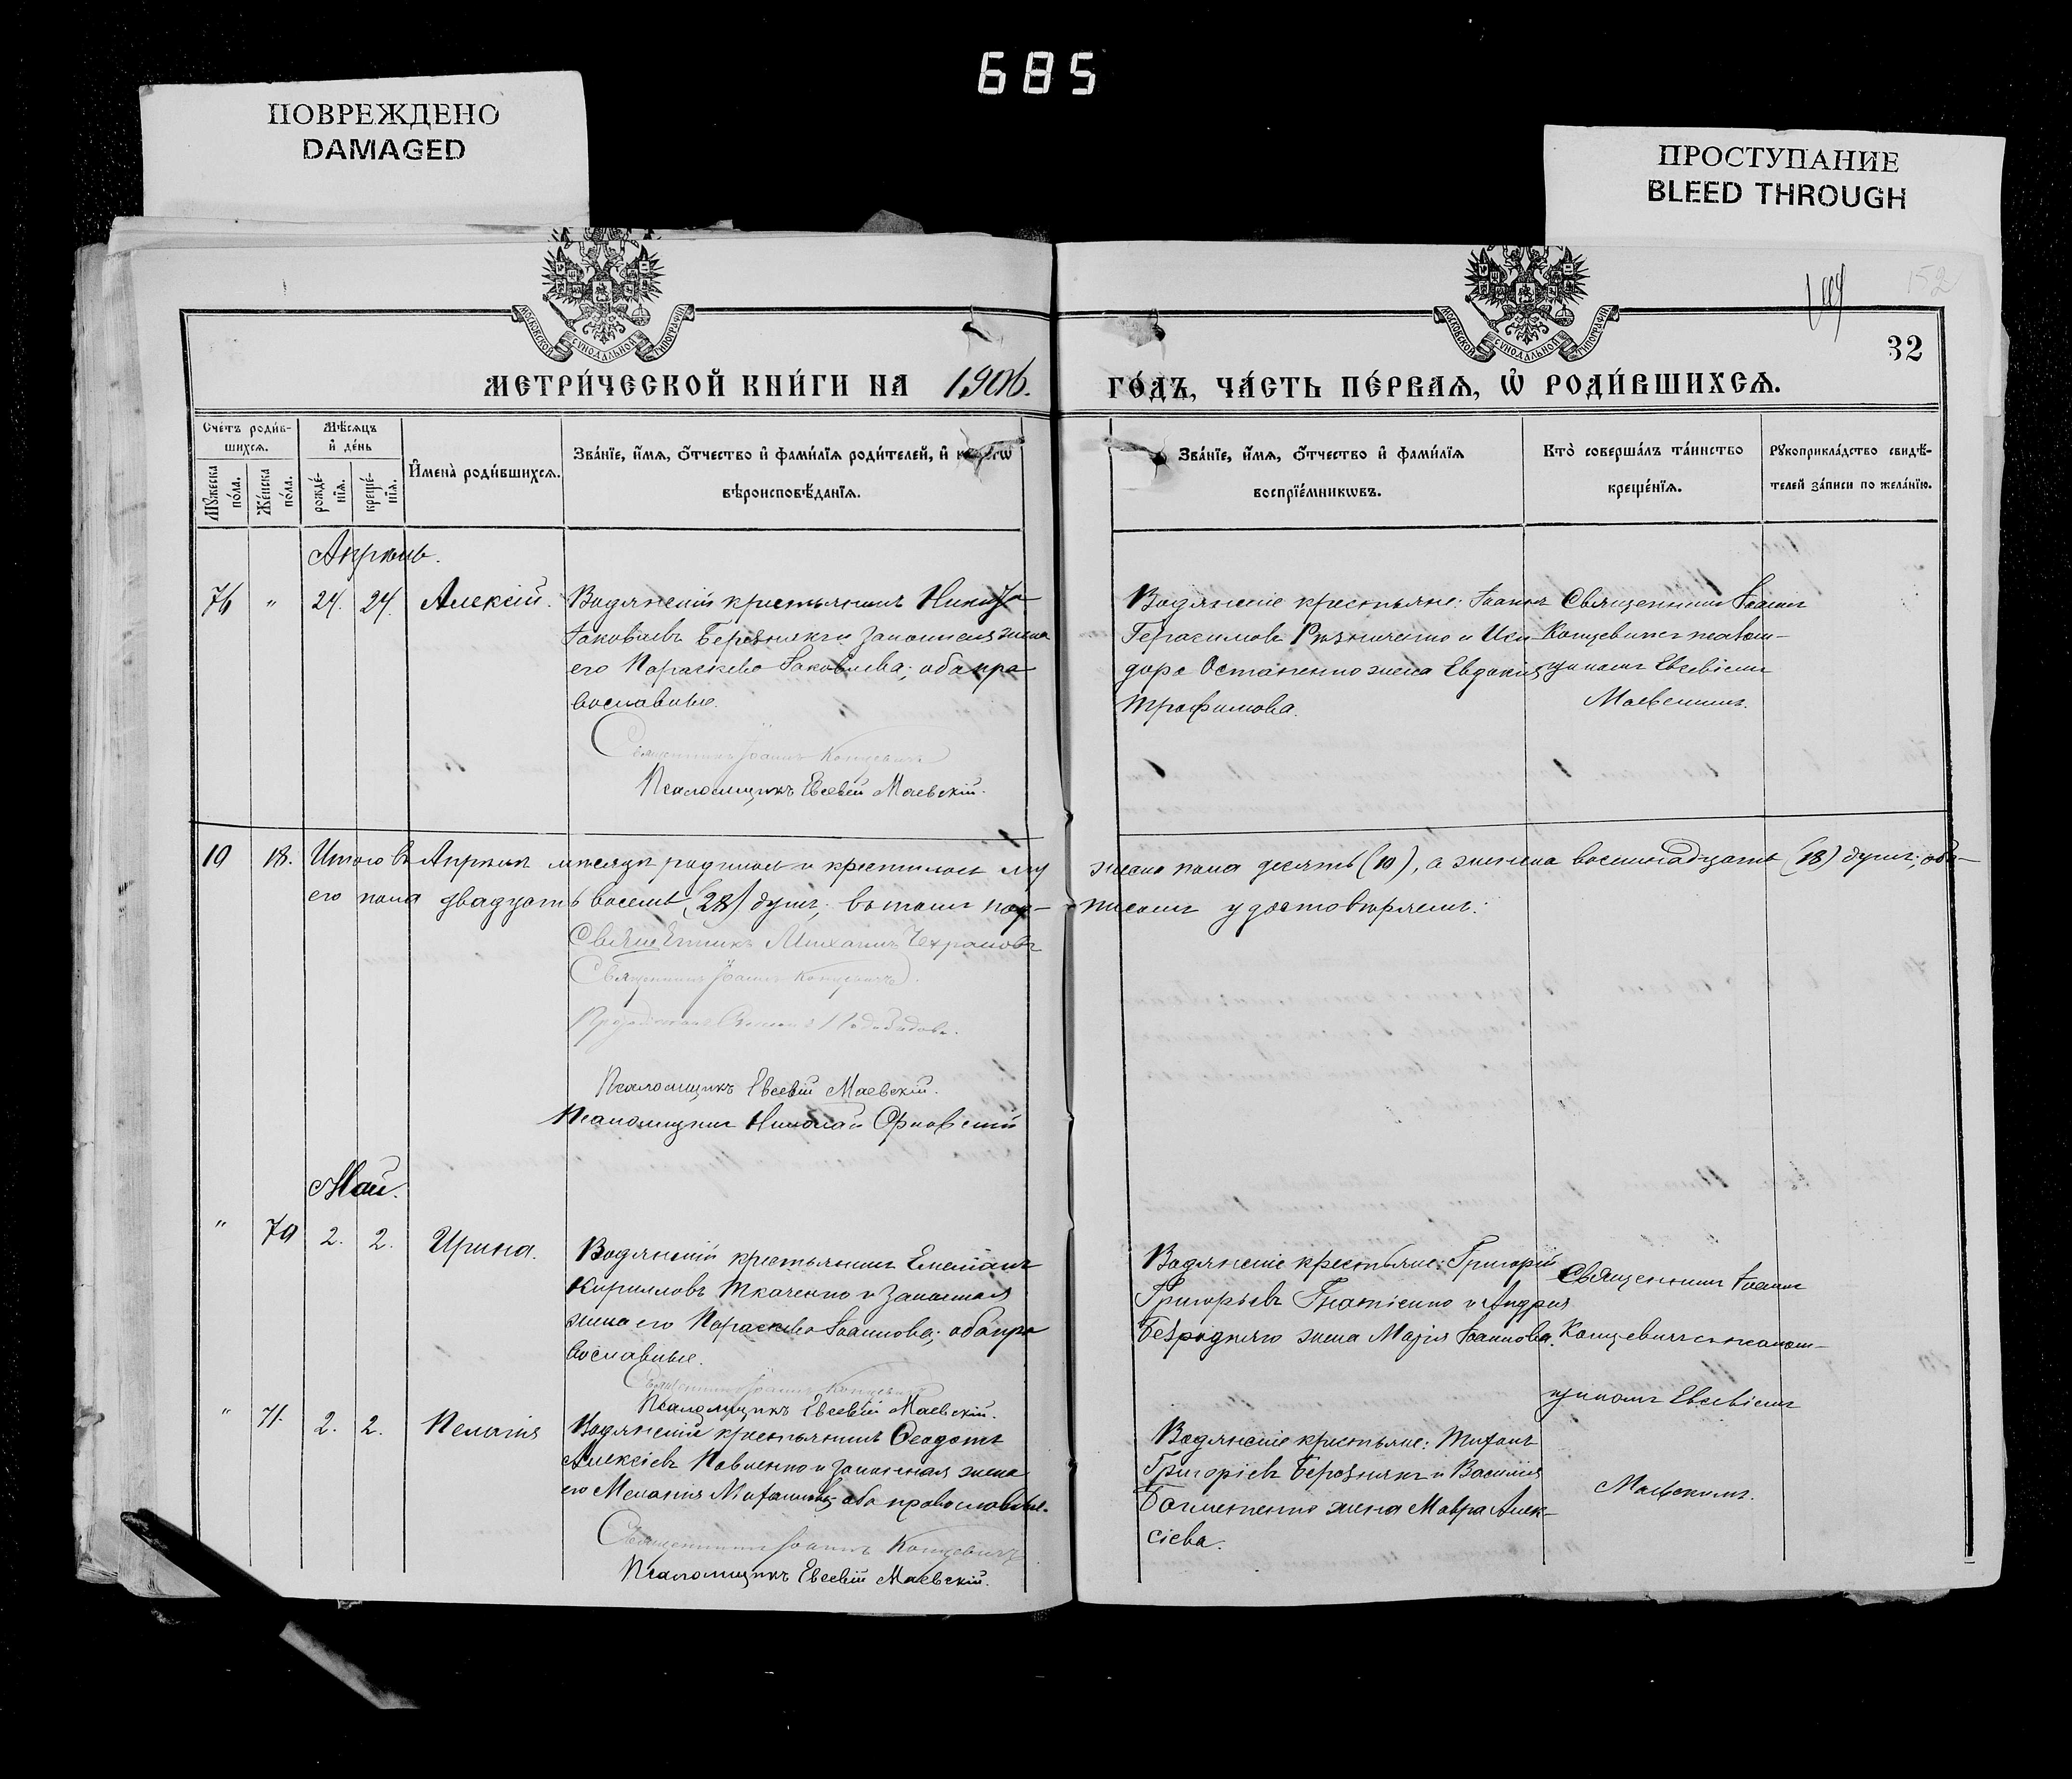 685
ПОВРЕЖДЕНО
DAMAGED
ПРОСТУПАНИЕ
BLEED THROUGH
152
32
МОСКОВСКОЙ СѴНОДАЛЬНОЙ ТИПОГРАФІИ
МОСКОВСКОЙ СѴНОДАЛЬНОЙ ТИПОГРАФІИ
МЕТРИ́ЧЕСКОЙ КНИ́ГИ НА 1906. ГО́ДЪ, ЧА́СТЬ ПЕ́РВАѦ, Ѡ҆ РОДИ́ВШИХСѦ.
Сче́тъ роди́в-
шихсѧ.
Мꙋжеска по́ла.
Же́нска по́ла.
Мѣ́сѧцъ
и҆ де́нь
рожде́-
нїѧ.
креще́-
нїѧ.
И҆мена̀ роди́вшихсѧ.
Зва́нїе, и҆́мѧ, ѻ҆́тчество и҆ фами́лїѧ роди́телей, и҆
вѣроисповѣ́данїѧ.
Зва́нїе, и҆́мѧ, ѻ҆́тчество и҆ фами́лїѧ
воспрїе́мникѡвъ.
Кто̀ соверша́лъ та́инство
креще́нїѧ.
Рꙋкоприкла́дство свидѣ́-
телей за́писи по жела́нїю.
Апрѣль.
76 " 24. 24. Алексій.
Водянскій крестьянинъ Никита
Іаковлевъ Березнякъ и законная жена
его Параскева Іаковлева; оба пра
вославные.
Священникъ Іоаннъ Концевичъ
Псаломщикъ Евсевій Маевскій.
Водянскіе крестьяне: Іоаннъ
Герасимовъ Рѣзниченко и Иси-
дора Остапенко жена Евдокія
Трофимова.
Священникъ Іоаннъ
Концевичъ съ псалом-
щикомъ Евсевіемъ
Маевскимъ.
10 18. Итого въ Апрѣлѣ мѣсяцѣ родилось и крестилось му жеска пола десять (10), а женска восемнадцать (18) душъ; обо-
его пола двадцать восемь (28) душъ; въ томъ под- писомъ удостовѣряемъ:
Священникъ Михаилъ
Священникъ Іоаннъ Концевичъ.
Псаломщикъ Евсевій Маевскій.
Псаломщикъ Николай Орловскій
Май.
" 70 2. 2. Ирина.
Водянскій крестьянинъ Емеліанъ
Кирилловъ Ткаченко и законная
жена его Параскева Іоаннова; оба пра
вославные.
Священникъ Іоаннъ Концевичъ
Псаломщикъ Евсевій Маевскій.
Водянскіе крестьяне: Григорій
Григорьевъ Гнатченко и Андрея
Безродняго жена Марія Іоаннова.
Священникъ Іоаннъ
Концевичъ съ псалом-
щикомъ Евсевіемъ
Маевскимъ.
" 71. 2. 2. Пелагія
Водянскій крестьянинъ Ѳеодотъ
Алексіевъ Павленко и законная жена
его Меланія оба православные.
Священникъ Іоаннъ Концевичъ
Псаломщикъ Евсевій Маевскій.
Водянскіе крестьяне:
Григоріевъ Березнякъ и Василія
жена Мавра Алек-
сіева.